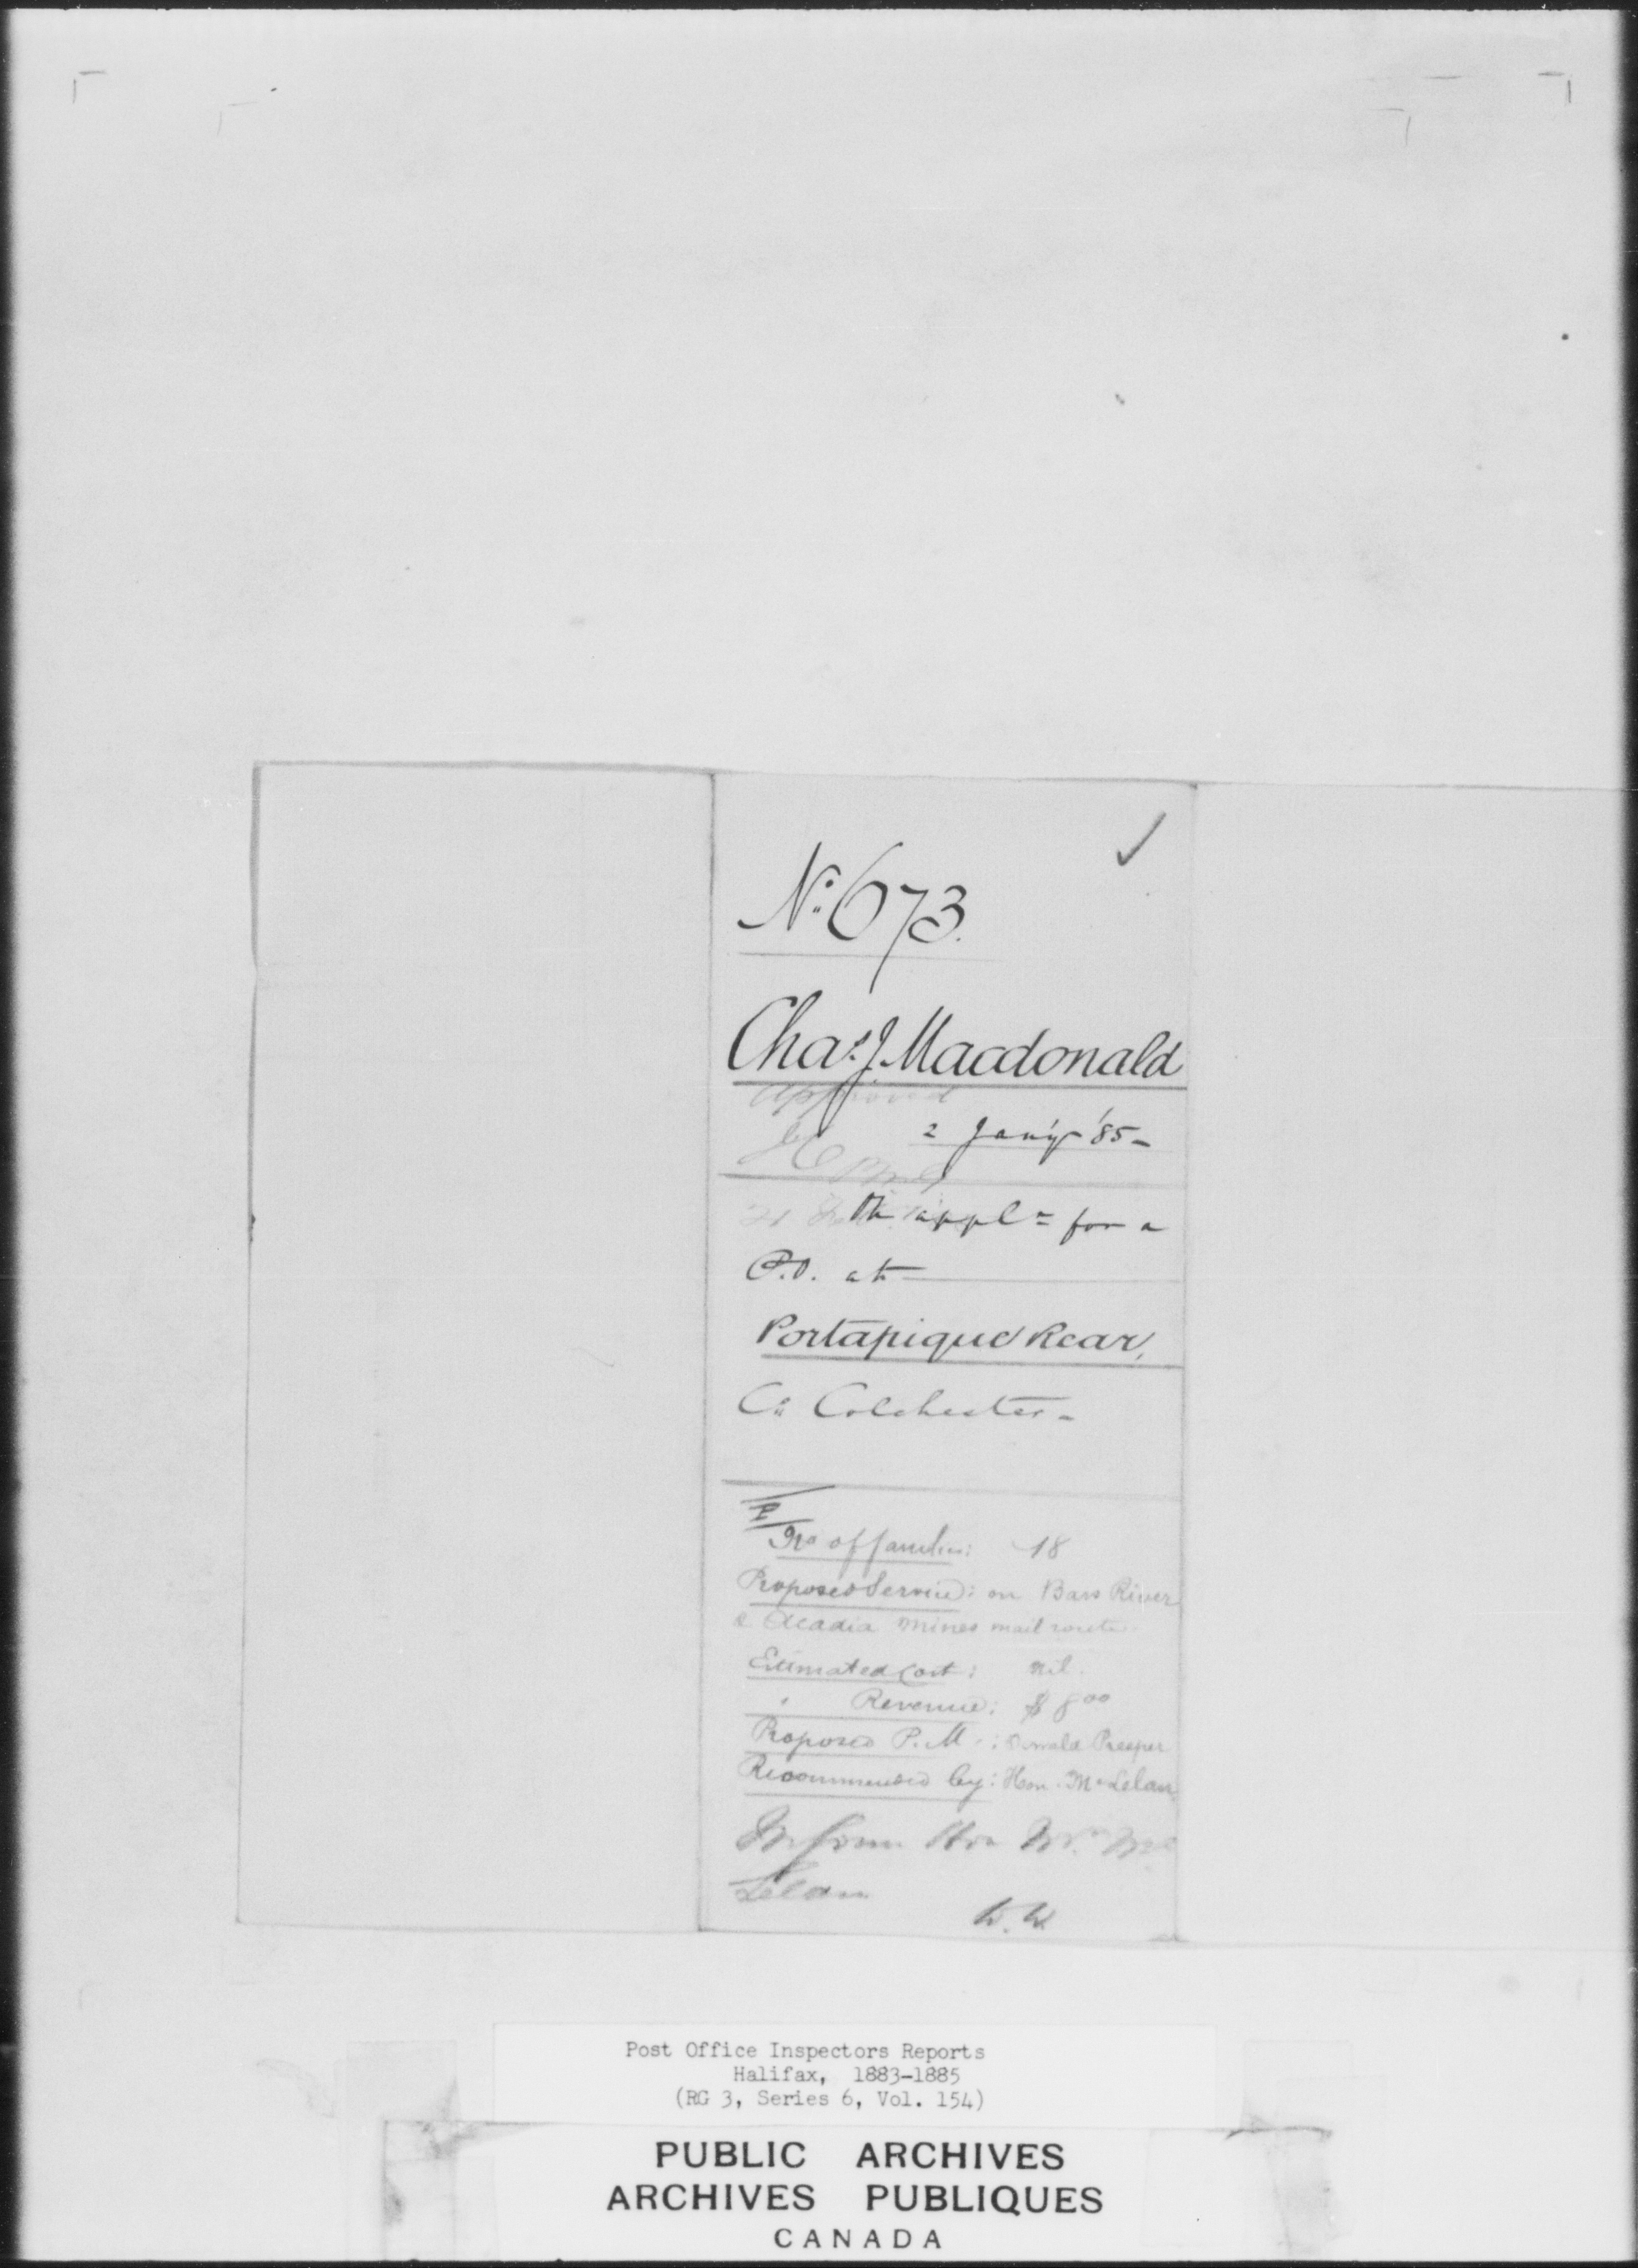 ✓
No. 673.
Chas. J. Macdonald
Approved
2 Jan'y '85 -
21 Feb
Re appln for a
P.O. at
Portapique Rear,
Co Colchester -
No of families: 18
Proposed Service: on Bass River
& Acadia Mines mail route
Estimated Cost: nil.
" Revenue: $8 00
Proposed P.M.: Donald Preeper
Recommended by: Hon. McLelan
Inform Hon Mr. Mc
Lelan
W.W.
Post Office Inspectors Reports
Halifax, 1883-1885
(RG 3, Series 6, Vol. 154)
PUBLIC ARCHIVES
ARCHIVES PUBLIQUES
CANADA